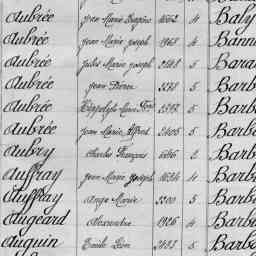 Aubrée Jean Marie Eugène 1882 4 Baly
Aubrée Jean Marie Joseph 1968 4 Bann
Aubrée Jules Marie Joseph 2848 5 Bara
Aubrée Jean Pierre 3278 5 Barb
Aubrée Hippolyte Marie 2392 5 Barb
Aubrée Jean Marie Alfred 2406 5 Barb
Aubry Charles François 1646 2 Barb
Auffray Jean Marie Joseph 1824 4 Barb
Auffray Ange Marie 3300 5 Barb
Augeard Alexandre 1926 4 Barb
Auguin Emile Léon 2433 5 Barb